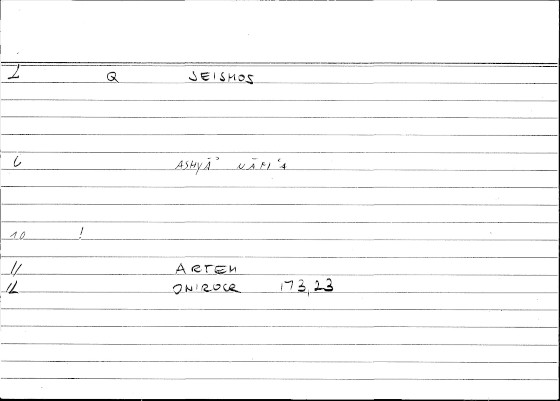 1 Q SEISMOS
6 ASHYĀʾ NĀFIʿA
10 !
11 ARTEM
12 ONIROCR 173,23